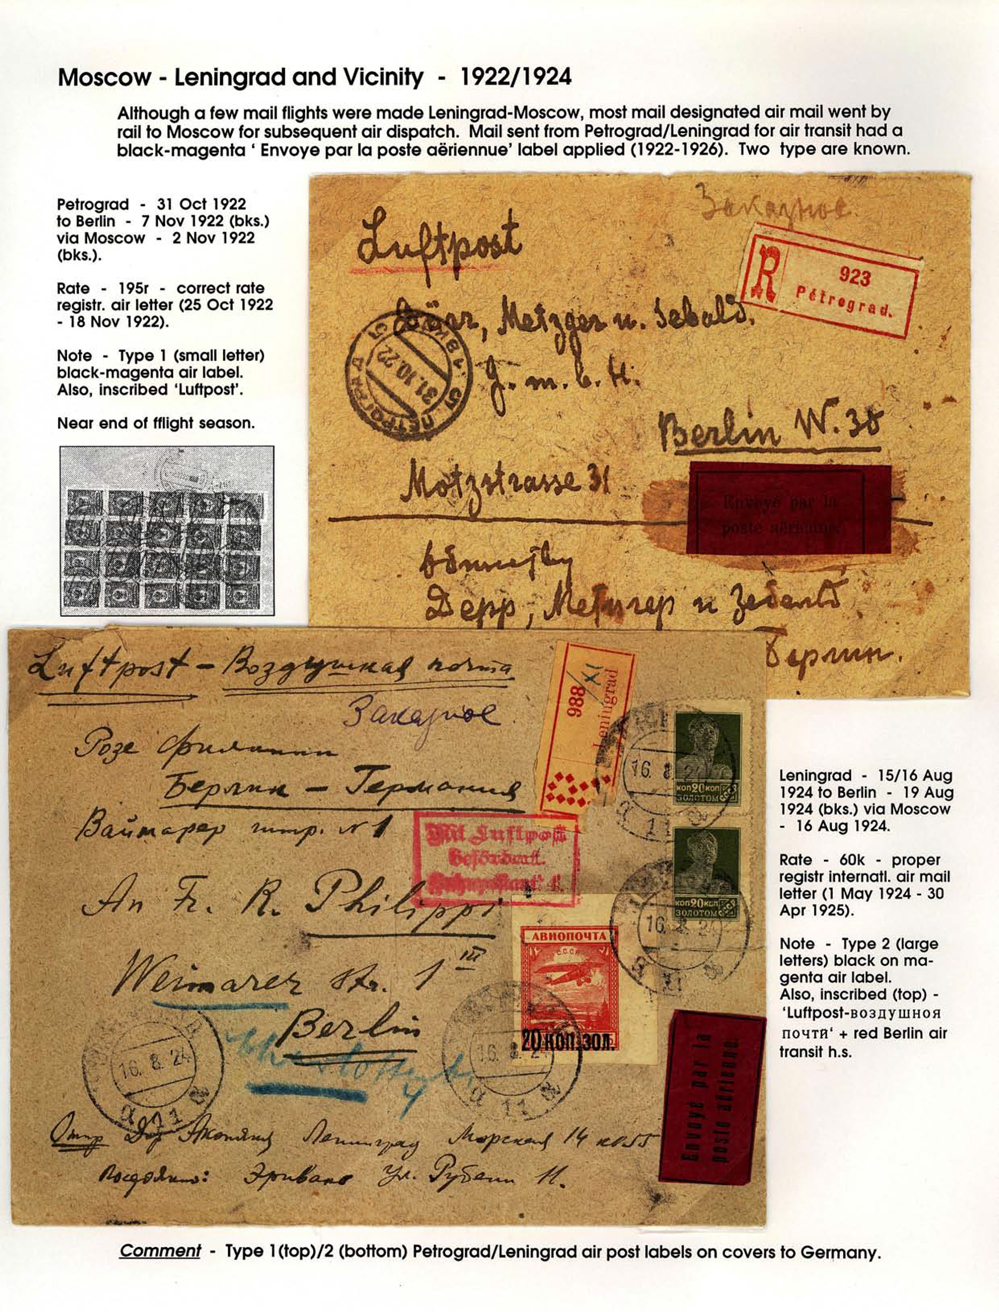 Moscow - Leningrad and Vicinity - 1922/1924
Although a few mail flights were made Leningrad-Moscow, most mail designated air mail went by
rail to Moscow for subsequent air dispatch. Mail sent from Petrograd/Leningrad for air transit had a
black-magenta ‘ Envoye par la poste aëriennue’ label applied (1922-1926). Two type are known.
Petrograd - 31 Oct 1922
to Berlin - 7 Nov 1922 (bks.)
via Moscow - 2 Nov 1922
(bks.).
Rate - 195r - correct rate
registr. air letter (25 Oct 1922
- 18 Nov 1922).
Note - Type 1 (small letter)
black-magenta air label.
Also, inscribed 'Luftpost'.
Near end of fflight season.
Заказное
Luftpost
R
923
Pétrograd.
Metzger u. Sebald.
G. m. b. H.
31.10.22
Berlin W. 30
Motzstrasse 31
Envoyé par la
poste aérienne.
Дерр, Мецгер и Зебальд
Берлин.
Luftpost - Воздушная почта
Заказное
988/XI
Leningrad
Розе Филиппи
Берлин - Германия
Ваймарер штр. № 1
Mit Luftpost
befördert.
An Fr. R. Philippi
Weimarer Str. 1 III
Berlin
16.8.24
КОП 20 КОП
ЗОЛОТОМ
16.8.24
КОП 20 КОП
ЗОЛОТОМ
16.8.24
АВИОПОЧТА
СССР
20 КОП. ЗОЛ.
16.8.24
Envoyé par la
poste aérienne.
Отпр Ленинград Морская 14 кв 55
Эривань Ул. Рубени 11.
Leningrad - 15/16 Aug
1924 to Berlin - 19 Aug
1924 (bks.) via Moscow
- 16 Aug 1924.
Rate - 60k - proper
registr internatl. air mail
letter (1 May 1924 - 30
Apr 1925).
Note - Type 2 (large
letters) black on ma-
genta air label.
Also, inscribed (top) -
'Luftpost-воздушноя
почти' + red Berlin air
transit h.s.
Comment - Type 1(top)/2 (bottom) Petrograd/Leningrad air post labels on covers to Germany.